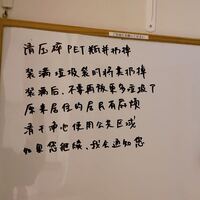 请压碎PET瓶并扔掉
装满垃圾袋时将其扔掉
装满后，不要再放更多垃圾了
原来居住的居民有麻烦
请干净地使用公共区域
如果您继续，我会通知您